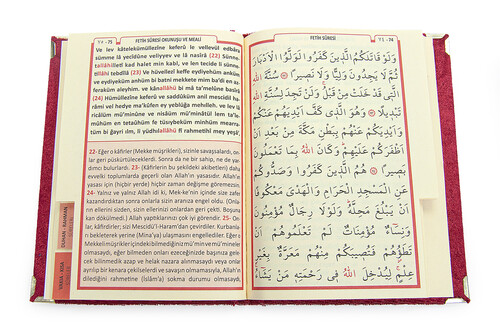 ٧٥ - 75 FETİH SÛRESİ OKUNUŞU VE MEALİ
Ve lev kâtelekümüllezine keferû le vellevül edbâra
sümme lâ yecidûne veliyyev ve lâ nasîrâ (22) Sünne-
tallâhilletî kad halet min kabl, ve len tecide li sünne-
tillâhi tebdîlâ (23) Ve hüvellezî keffe eydiyehüm anküm
ve eydiyeküm anhüm bi batni mekkete mim ba'di en az-
feraküm aleyhim. ve kânallâhü bi mâ ta'melûne basîrâ
(24) Hümüllezîne keferû ve saddûküm anil mescidil ha-
râmi vel hedye ma'kûfen ey yeblüğa mehılleh. ve lev lâ
ricâlüm mü'minûne ve nisâüm mü'minâtül lem ta'le-
mûhüm en tetaûhüm fe tüsıybeküm minhüm mearra-
tüm bi ğayri ılm, li yüdhılallâhü fî rahmetihî mey yeşâ',
22- Eğer o kâfirler (Mekke müşrikleri), sizinle savaşsalardı, on-
lar geri püskürtüleceklerdi. Sonra da ne bir sahip, ne de yar-
dımcı bulurlardı. 23- (Kâfirlerin bu şekildeki akibetleri) daha
evvelki toplumlarda geçerli olan Allah'ın yasasıdır. Allah'ın
yasası için (hiçbir yerde) hiçbir zaman değişme göremezsin.
24- Yalnız ve yalnız Allah idi ki, Mekke'nin içinde size zafer
kazandırdıktan sonra onlarla sizin aranıza engel oldu. (Onla-
rın ellerini sizden, sizin ellerinizi onlardan geri çekti. Boşuna
kan dökülmedi.) Allah yaptıklarınızı çok iyi görendi. 25- On-
lar, kâfirdirler; sizi Mescidu'l-Haram'dan çevirdiler. Kurbanla-
rı bekleterek yerine (Mina'ya) ulaşmasını engellediler. Eğer o
Mekkeli müşriklerin içinde bilmediğiniz mü'min ve mü'mineler
olmasaydı, eğer bilmeden onları ezeceğinizde başınıza gele-
cek bilinmedik azap ve helak nazara alınmasaydı veya onla
ayrılıp bir kenara çekilselerdi ve savaşın olmamasıyla, Allah'ın
dilediğini rahmetine (İslâm'a) sokma durumu olmasaydı,
DUHAN - RAHMAN
VAKIA - KISA
FETİH SÛRESİ ٧٤ - 74
وَلَوْ قَاتَلَكُمُ الَّذِينَ كَفَرُوا لَوَلَّوُا الْاَدْبَارَ
ثُمَّ لَا يَجِدُونَ وَلِيًّا وَلَا نَصِيرًا ﴿٢٢﴾ سُنَّةَ اللّٰهِ
الَّتِى قَدْ خَلَتْ مِنْ قَبْلُ وَلَنْ تَجِدَ لِسُنَّةِ اللّٰهِ
تَبْدِيلًا ﴿٢٣﴾ وَهُوَ الَّذِى كَفَّ اَيْدِيَهُمْ عَنْكُمْ
وَاَيْدِيَكُمْ عَنْهُمْ بِبَطْنِ مَكَّةَ مِنْ بَعْدِ اَنْ
اَظْفَرَكُمْ عَلَيْهِمْ وَكَانَ اللّٰهُ بِمَا تَعْمَلُونَ
بَصِيرًا ﴿٢٤﴾ هُمُ الَّذِينَ كَفَرُوا وَصَدُّوكُمْ
عَنِ الْمَسْجِدِ الْحَرَامِ وَالْهَدْىَ مَعْكُوفًا
اَنْ يَبْلُغَ مَحِلَّهُ وَلَوْلَا رِجَالٌ مُؤْمِنُونَ
وَنِسَاءٌ مُؤْمِنَاتٌ لَمْ تَعْلَمُوهُمْ اَنْ
تَطَؤُهُمْ فَتُصِيبَكُمْ مِنْهُمْ مَعَرَّةٌ بِغَيْرِ
عِلْمٍ لِيُدْخِلَ اللّٰهُ فِى رَحْمَتِهِ مَنْ يَشَاءُ